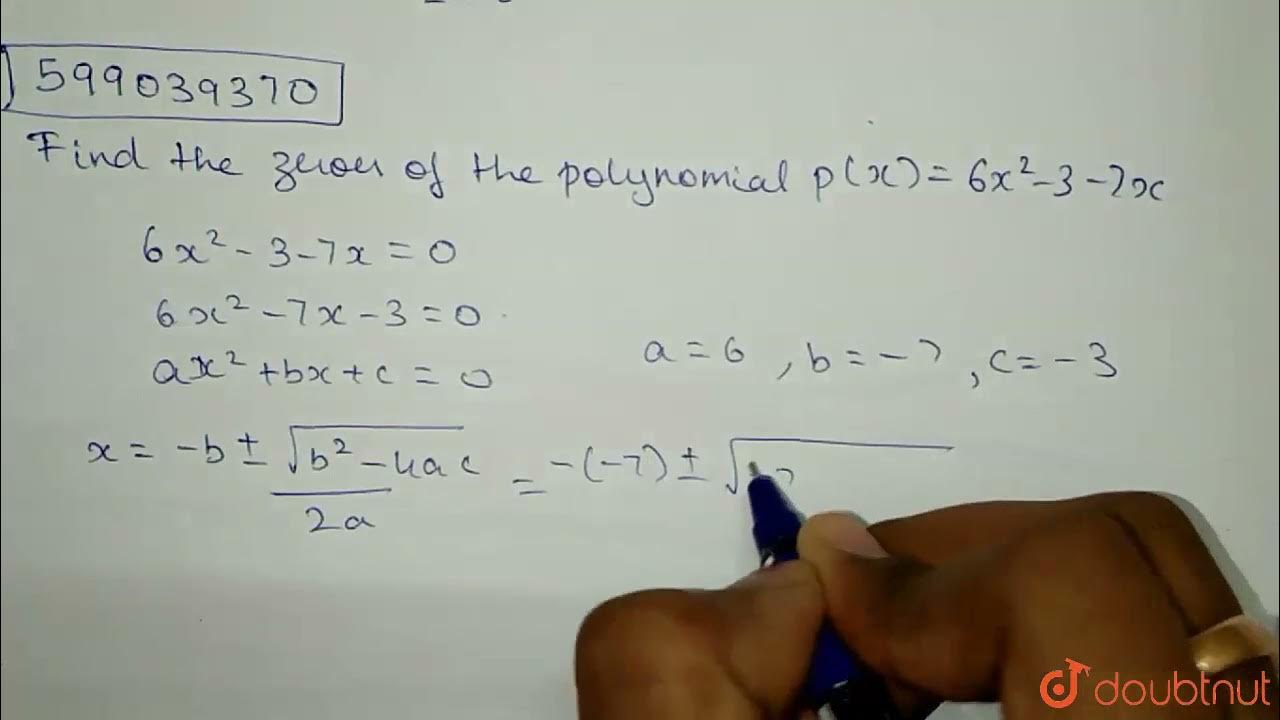 599039370
Find the zeroes of the polynomial p(x) = 6x² - 3 - 7x
6x² - 3 - 7x = 0
6x² - 7x - 3 = 0
ax² + bx + c = 0
a = 6 , b = - 7 , c = - 3
x = -b ± √b² - 4ac = -(-7) ± √
2a
doubtnut